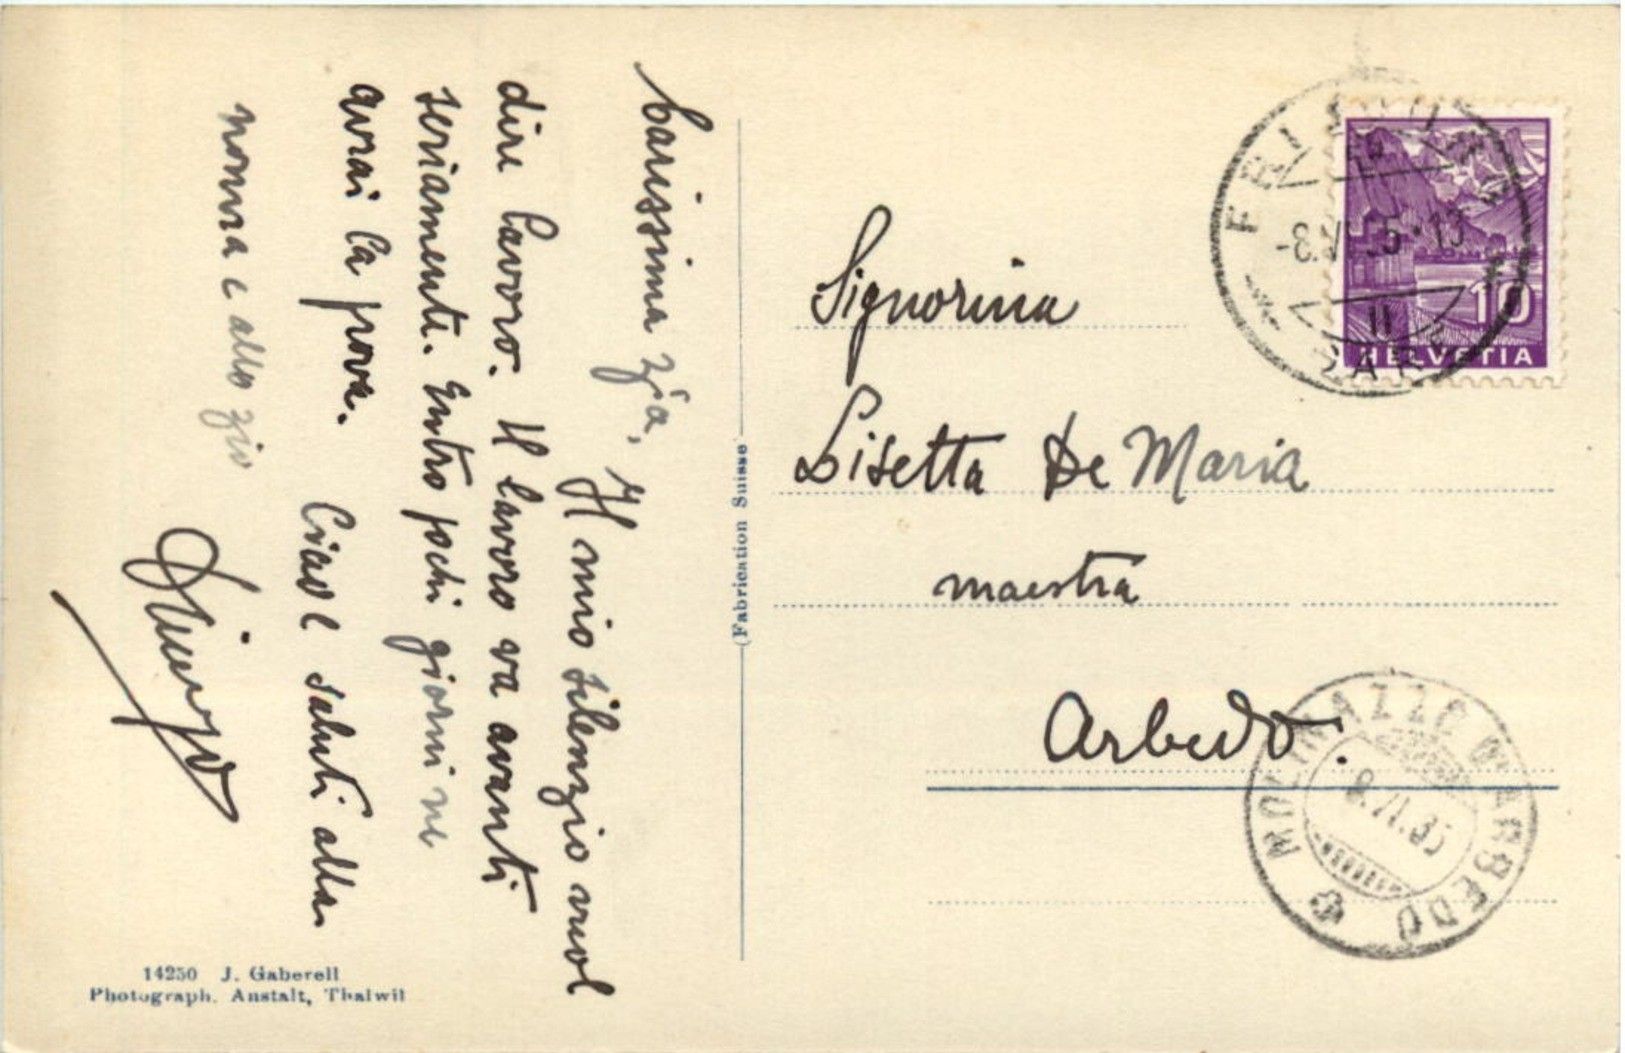 Carissima Zia,
Il mio silenzio vuol
dire lavoro. Il lavoro va avanti
seriamente. Entro pochi giorni ne
avrai la prova. Ciao e saluti alla
nonna e allo zio
(Fabrication Suisse)
Signorina
Lisetta De Maria
maestra
Arbedo.
10
HELVETIA
MOLINAZZO D'ARBEDO
8.VI.35
14250 J. Gaberell
Photograph. Anstalt, Thalwil